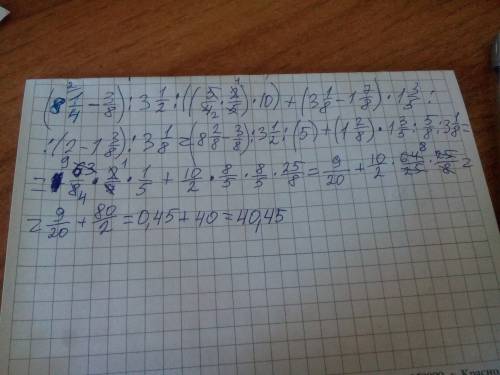 (8 1/4 − 3/8) : 3 1/2 : ((5/4 · 2/5) · 10) + (3 1/8 − 1 7/8) · 1 3/5 :
: (2 − 1 3/8) : 3 1/8 = (8 2/8 − 3/8) : 3 1/2 : (5) + (1 2/8) · 1 3/5 : 5/8 : 3 1/8 =
= 63/8 · 2/7 · 1/5 + 10/2 · 8/5 · 8/5 · 25/8 = 9/20 + 10/2 · 64/25 · 25/8 =
= 9/20 + 80/2 = 0,45 + 40 = 40,45